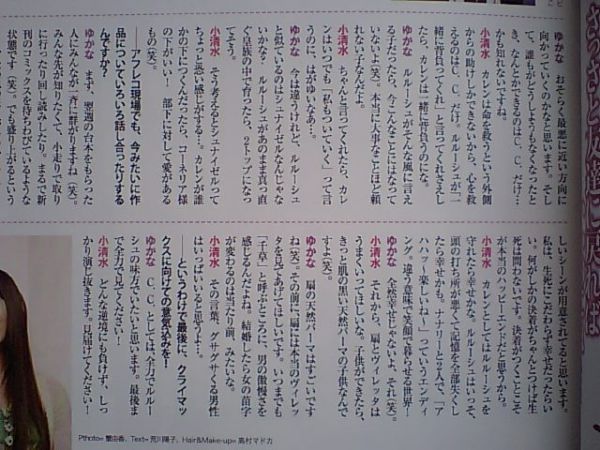 さっさと友達に戻れば
ゆかな　おそらく最悪に近い方向に
向かっていくのかなと思います。そし
て、誰もがどうしようもなくなったと
き、なんとかできるのはC.C.だけ…
かも知れないですね。
小清水　カレンは命を救うという外側
からの助けしかできないから、心を救
えるのはC.C.だけ。ルルーシュが「一
緒に背負ってくれ」と言ってくれさえし
たら、カレンは一緒に背負うのにな。
ゆかな　ルルーシュがそんな風に言え
る子だったら、今こんなことにはなって
いないよ(笑)。本当に大事なことほど頼
れない子なんだよ。
小清水　ちゃんと言ってくれたら、カレ
ンはいつでも「私もついていく」って言
うのに、はがゆいなあ…。
ゆかな　今は違うけれど、ルルーシュ
と似ているのはシュナイゼルなんじゃな
いかな？ルルーシュがあのまま真っ直
ぐ皇族の中で育ったら、2トップになっ
てそう。
小清水　そう考えるとシュナイゼルって
ちょっと恐い感じがする…。カレンが誰
かの下につくんだったら、コーネリア様
の下がいい！部下に対して愛がある
もの(笑)。
――アフレコ現場でも、今みたいに作
品についていろいろ話し合ったりする
んですか？
ゆかな　まず、翌週の台本をもらった
人にみんなが一斉に群がりますね(笑)。
みんな先が知りたくて、小走りで取り
に行ったり回し読みしたり。まるで新
刊のコミックスを待ちわびているような
状態です(笑)。でも盛り上がるという
しいシーンが用意されてると思います。
私は、生死にこだわらず幸せだったらい
い。何がしかの決着がちゃんとつけば生
死は問わないです。決着がつくことこそ
が本当のハッピーエンドだと思うから。
小清水　カレンとしてはルルーシュを
守れたら幸せかな。ルルーシュはいっそ、
頭の打ち所が悪くて記憶を全部失くし
たら幸せかも。ナナリーと2人で、「ア
ハハッ〜楽しいね〜！」っていうエンディ
ング。違う意味で笑顔で暮らせる世界！
ゆかな　全然幸せじゃないよ、それ(笑)。
小清水　それから、扇とヴィレッタは
うまくいってほしいな。子供ができたら、
きっと肌の黒い天然パーマの子供なんで
すよ(笑)。
ゆかな　扇の天然パーマはすごいです
ね(笑)。その前に、扇には本当のヴィレッ
タを見てあげてほしいです。いつまでも
「千草」と呼ぶところに、男の傲慢さを
感じるんだよね。結婚したら女の苗字
が変わるのは当たり前、みたいな。
小清水　その言葉、グサグサくる男性
はいっぱいいると思うよ〜！。
――というわけで最後に、クライマッ
クスに向けての意気込みを！
ゆかな　C.C.としては、全力でルルー
シュの味方でいたいと思います。最後ま
で全力で見てください！
小清水　どんな逆境にも負けず、しっ
かり演じ抜きます。見届けてください！
Photo=蟹由香、Text=荒川陽子、Hair&Make-up=高村マドカ